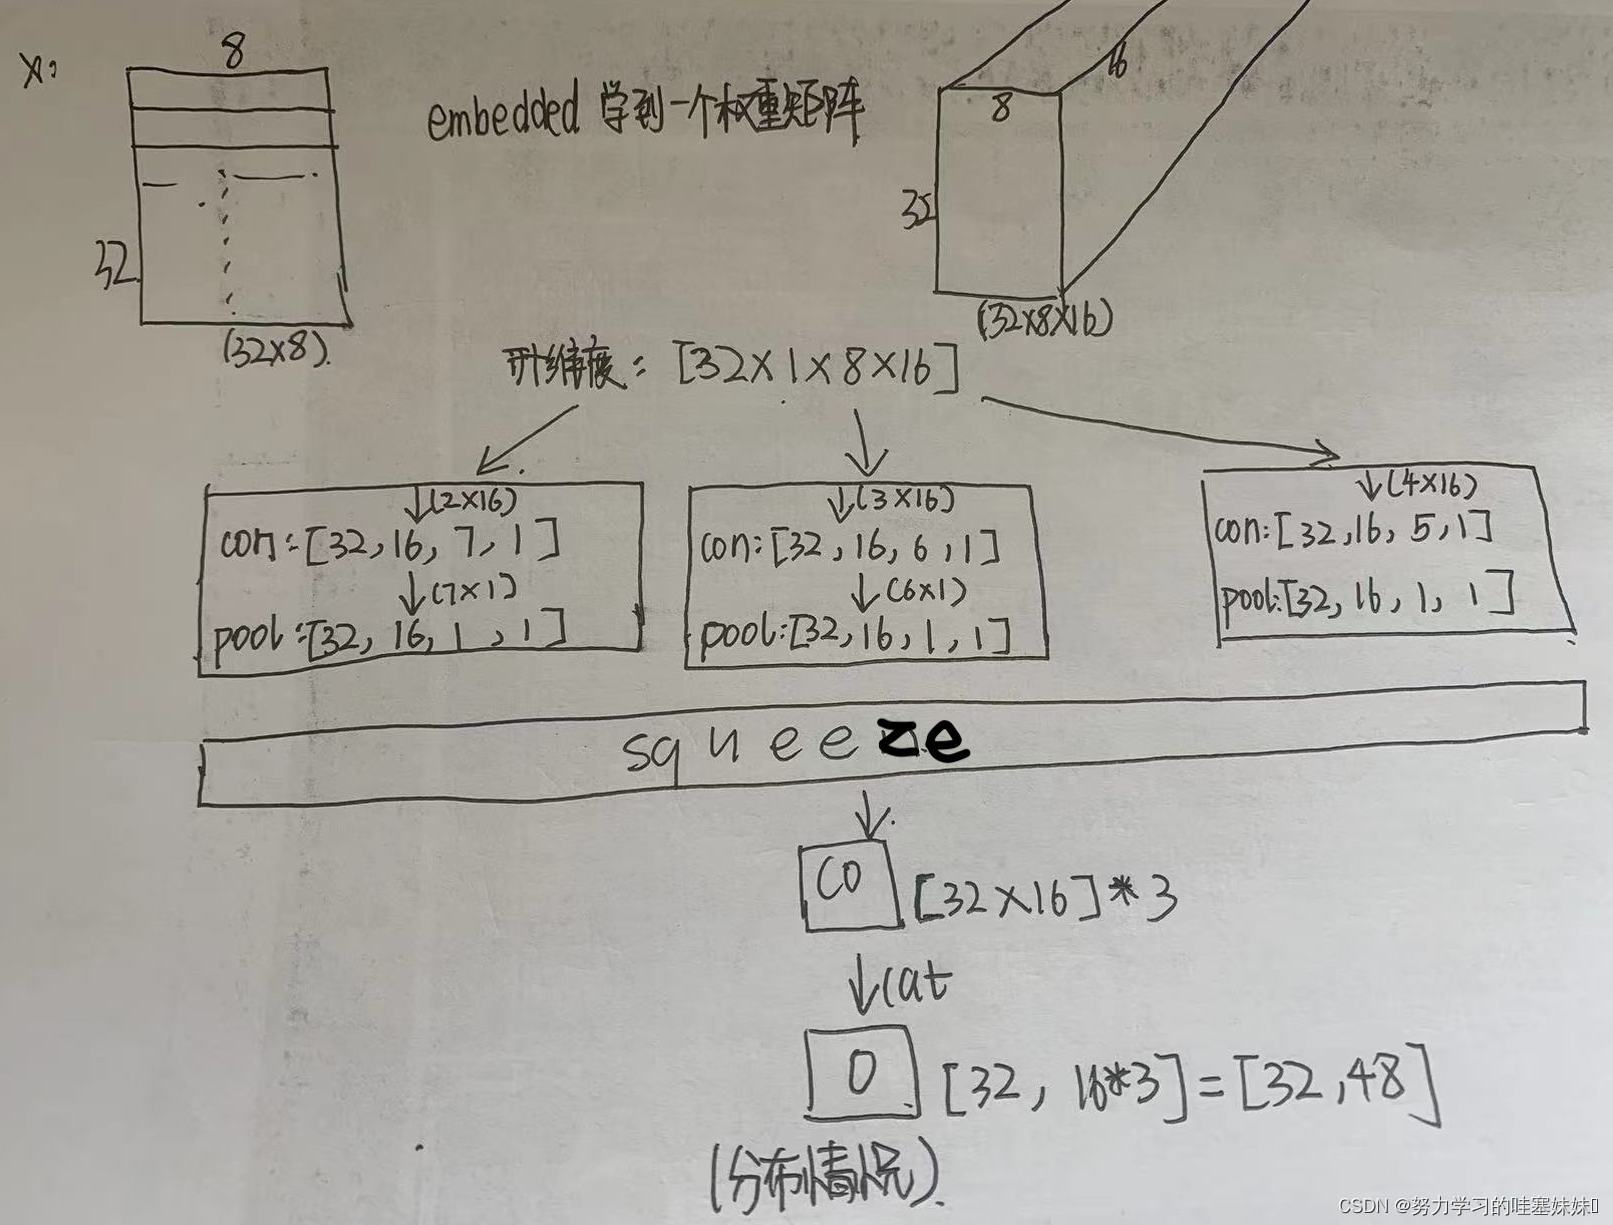 x:
8
32
(32×8).
embedded 学到一个权重矩阵
8
16
32
(32×8×16)
升维度: [32×1×8×16]
↓(2×16)
con:[32,16,7,1]
↓(7×1)
pool:[32,16,1,1]
↓(3×16)
con:[32,16,6,1]
↓(6×1)
pool:[32,16,1,1]
↓(4×16)
con:[32,16,5,1]
pool:[32,16,1,1]
squeeze
CO [32×16]*3
↓cat
O [32, 16*3]=[32,48]
(分布情况).
CSDN @努力学习的哇塞妹妹